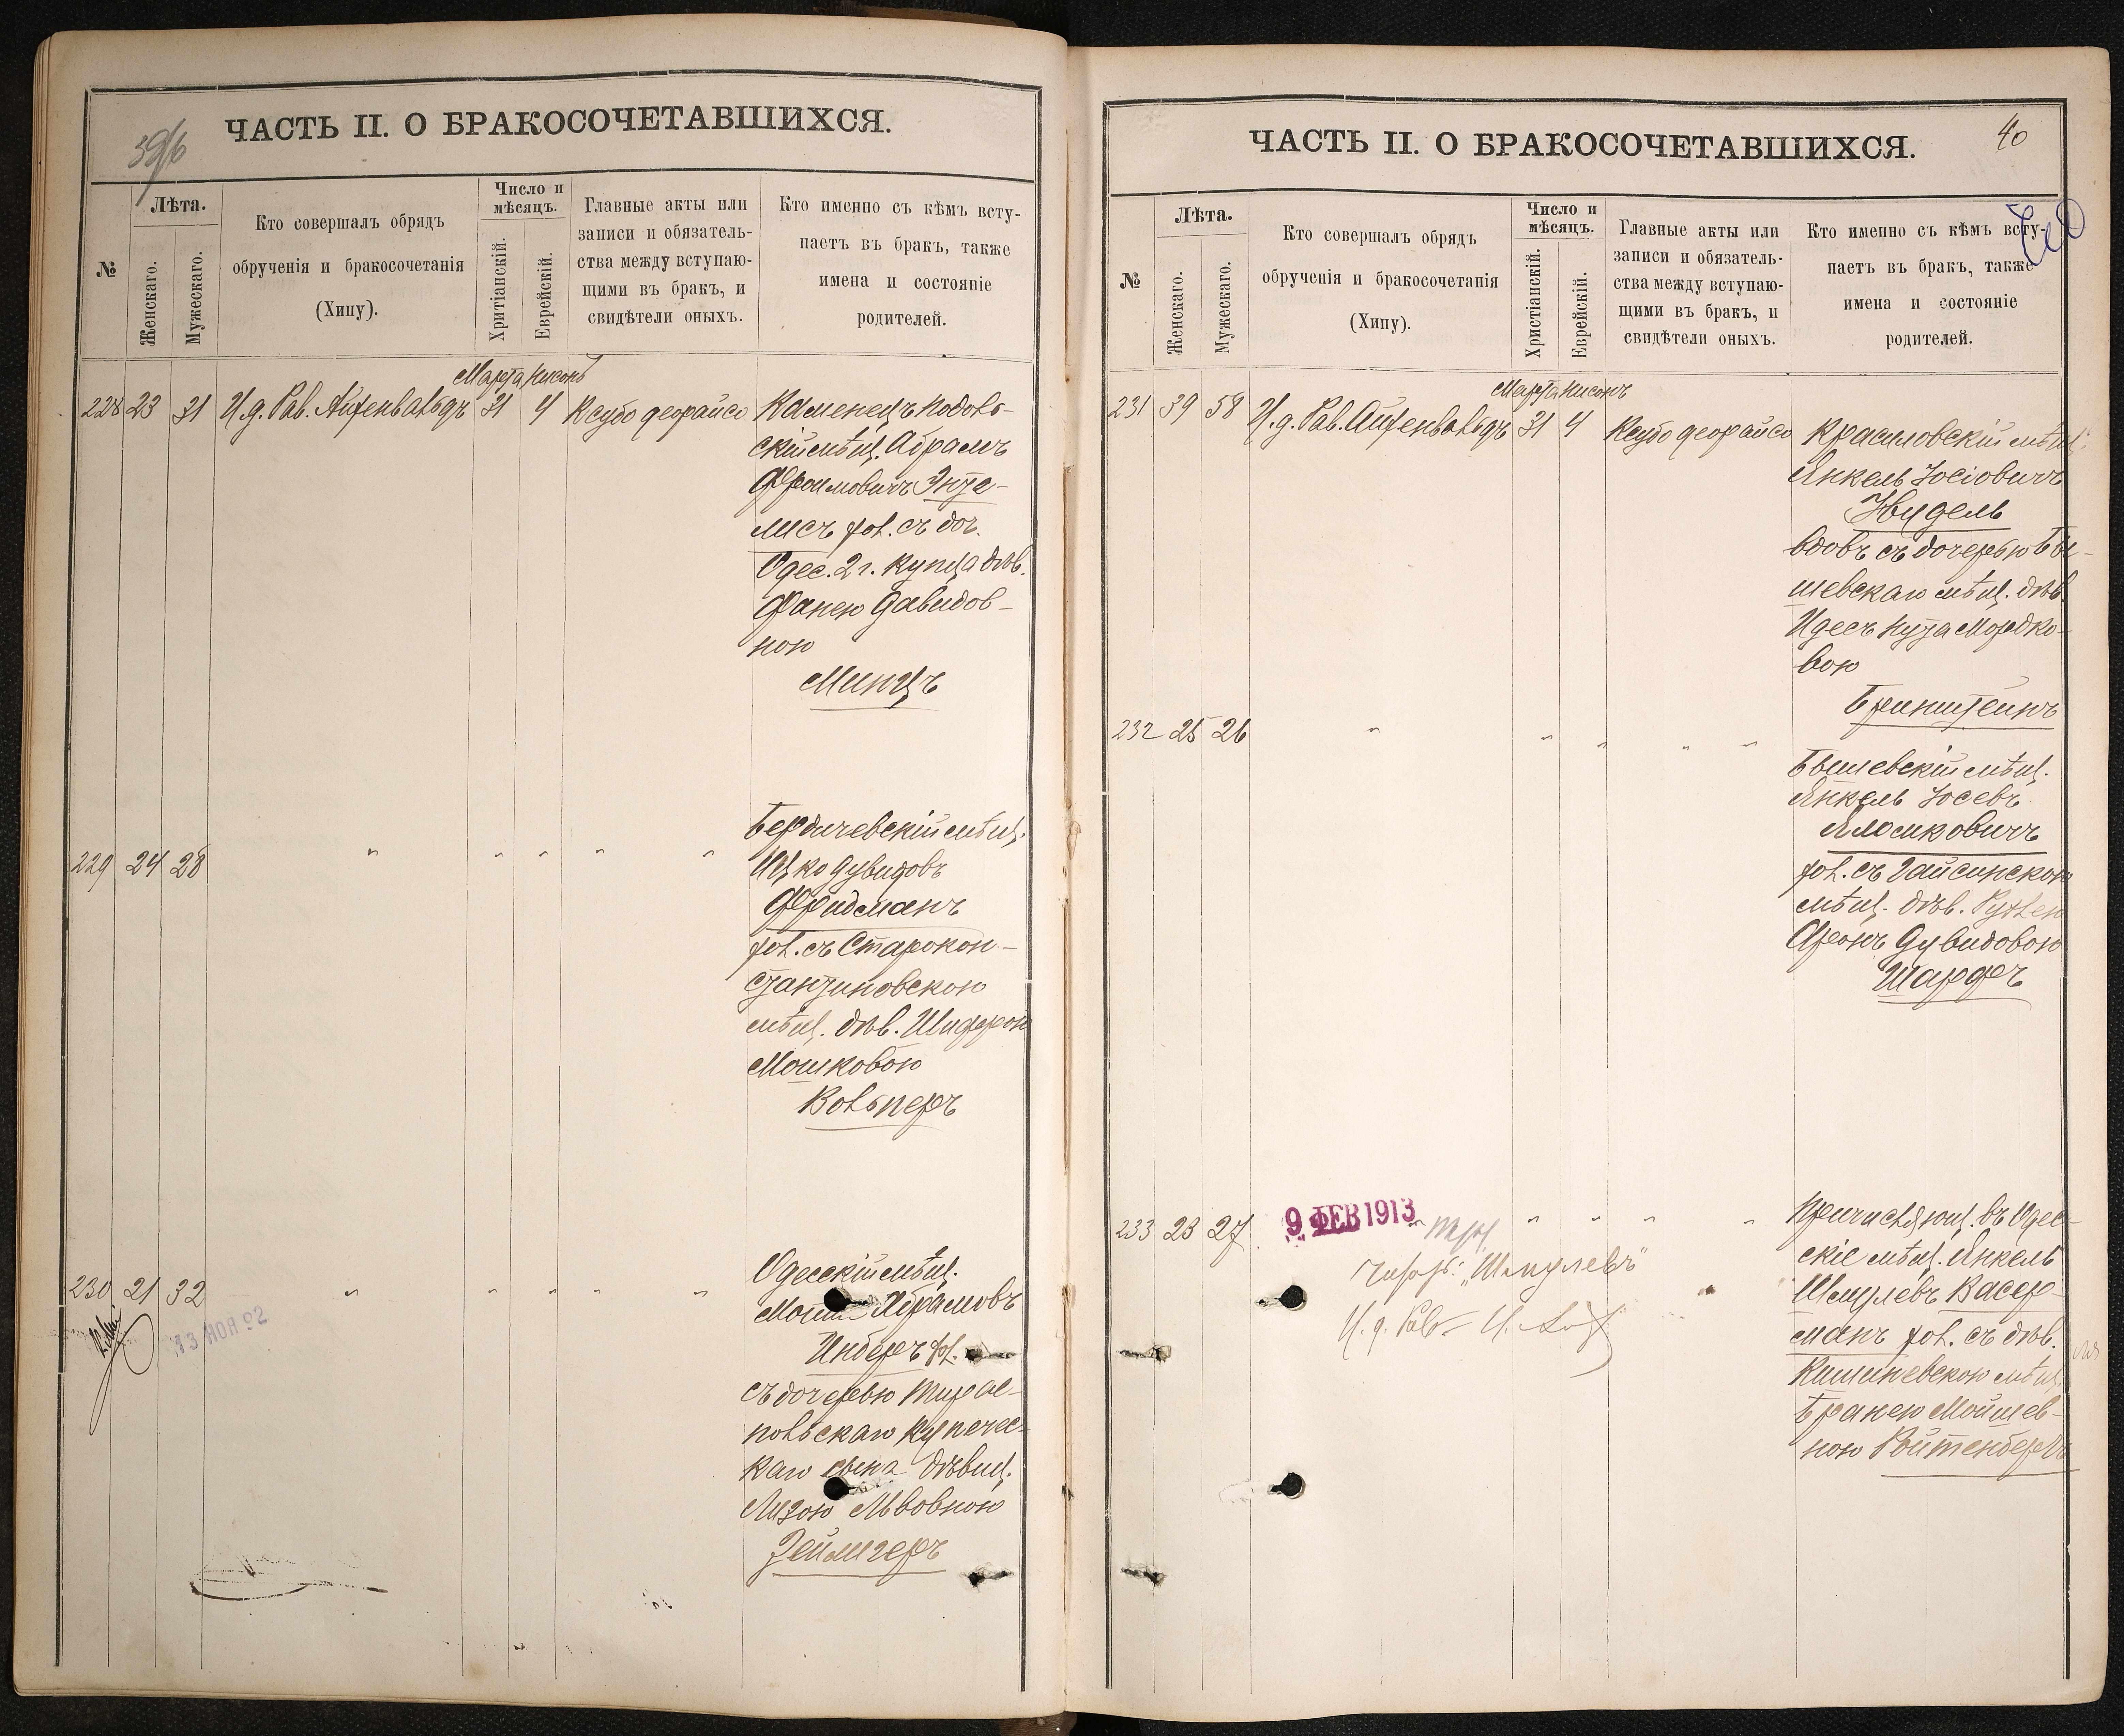 39/б
ЧАСТЬ II. О БРАКОСОЧЕТАВШИХСЯ.
№
Лѣта.
Женскаго.
Мужескаго.
Кто совершалъ обрядъ
обрученія и бракосочетанія
(Хипу).
Число и
мѣсяцъ.
Хритіанскій.
Еврейскій.
Главные акты или
записи и обязатель-
ства между вступаю-
щими въ бракъ, и
свидѣтели оныхъ.
Кто именно съ кѣмъ всту-
паетъ въ бракъ, также
имена и состояніе
родителей.
Марта Нисонъ
228 23 31 И.д. Рав. Айзенвальдъ 31 4 Ксубо деорайсо
Каменецъ Подоль-
скій мѣщ. Абрамъ
Фроимовичъ Энте-
лисъ хол. съ доч.
Одес. 2 г. купца дѣв.
Фанею Давидов-
ною
Минцъ
229 24 28 " " " " "
Бердичевскій мѣщ.
Ицко Дувидовъ
Фридманъ
хол. съ Старокон-
стантиновскою
мѣщ. дѣв. Шифрою
Мошковою
Вольперъ
230 21 32 " " " " "
13 НОЯ
Одесскій мѣщ.
Абрамовъ
Инберъ
съ дочерью Тирас-
польскаго купечес-
каго сына дѣвиц.
Лизою Львовною
Зейлигеръ
40
ЧАСТЬ II. О БРАКОСОЧЕТАВШИХСЯ.
№
Лѣта.
Женскаго.
Мужескаго.
Кто совершалъ обрядъ
обрученія и бракосочетанія
(Хипу).
Число и
мѣсяцъ.
Христіанскій.
Еврейскій.
Главные акты или
записи и обязатель-
ства между вступаю-
щими въ бракъ, и
свидѣтели оныхъ.
Кто именно съ кѣмъ всту-
паетъ въ бракъ, также
имена и состояніе
родителей.
Марта Нисонъ
231 39 58 И.д. Рав. Айзенвальдъ 31 4 Ксубо деорайсо
Красиловскій мѣщ.
Янкель Іосіовичъ
вдовъ съ дочерью Бы-
шевскаго мѣщ. дѣв.
Идесъ Нута Мордко-
вою
Бринштейнъ
232 25 26 " " " " "
Бышевскій мѣщ.
Янкель Іосевъ
хол. съ Гайсинскою
мѣщ. дѣв. Рухлею
Фроиъ Дувидовою
Шарфъ
233 23 27 " " " " "
9 ФЕВ 1913
"Шмулевъ"
И. д. Рав.
Причисляющ. въ Одес-
скіе мѣщ. Янкель
Шмулевъ Васер-
манъ хол. съ дѣв.
Кишиневскою мѣщ.
Бранею Мойшев-
ною Ройтенбергъ